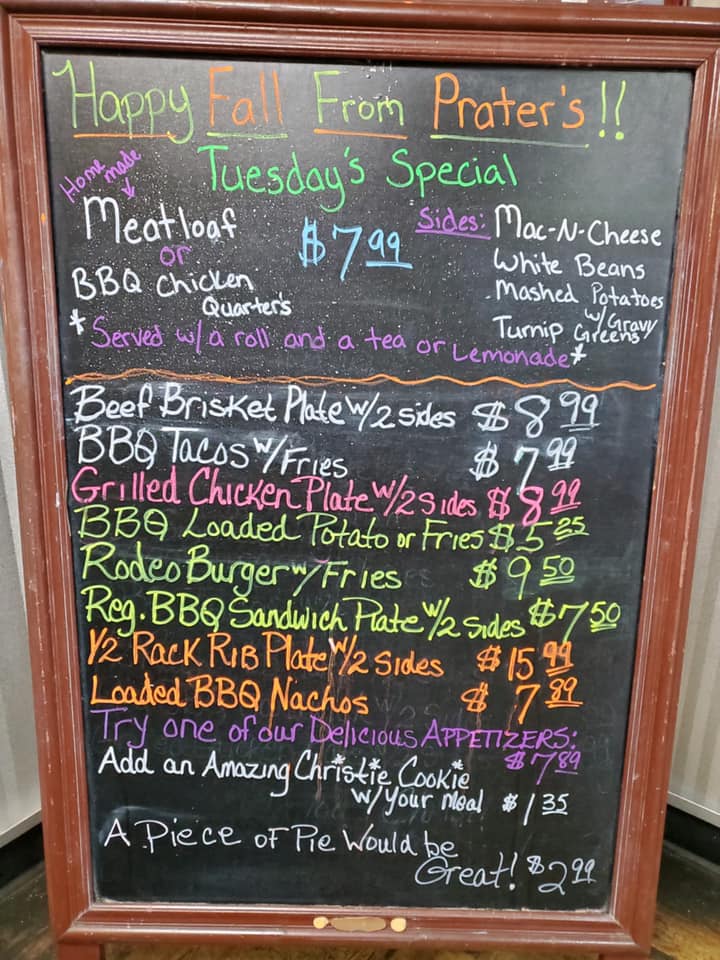 Happy Fall From Prater's!!
Tuesday's Special
Home made
Meatloaf
or
BBQ Chicken
Quarter's
$7.99
Sides: Mac-N-Cheese
White Beans
Mashed Potatoes
w/Gravy
Turnip Greens
*Served w/a roll and a tea or Lemonade*
Beef Brisket Plate w/2 sides $8.99
BBQ Tacos w/Fries $7.99
Grilled Chicken Plate w/2 Sides $8.99
BBQ Loaded Potato or Fries $5.25
Rodeo Burger w/Fries $9.50
Reg. BBQ Sandwich Plate w/2 sides $7.50
1/2 Rack Rib Plate w/2 sides $15.99
Loaded BBQ Nachos $7.89
Try one of our Delicious APPETIZERS:
$7.89
Add an Amazing Christie Cookie
w/Your Meal $1.35
A Piece of Pie Would be
Great! $2.99